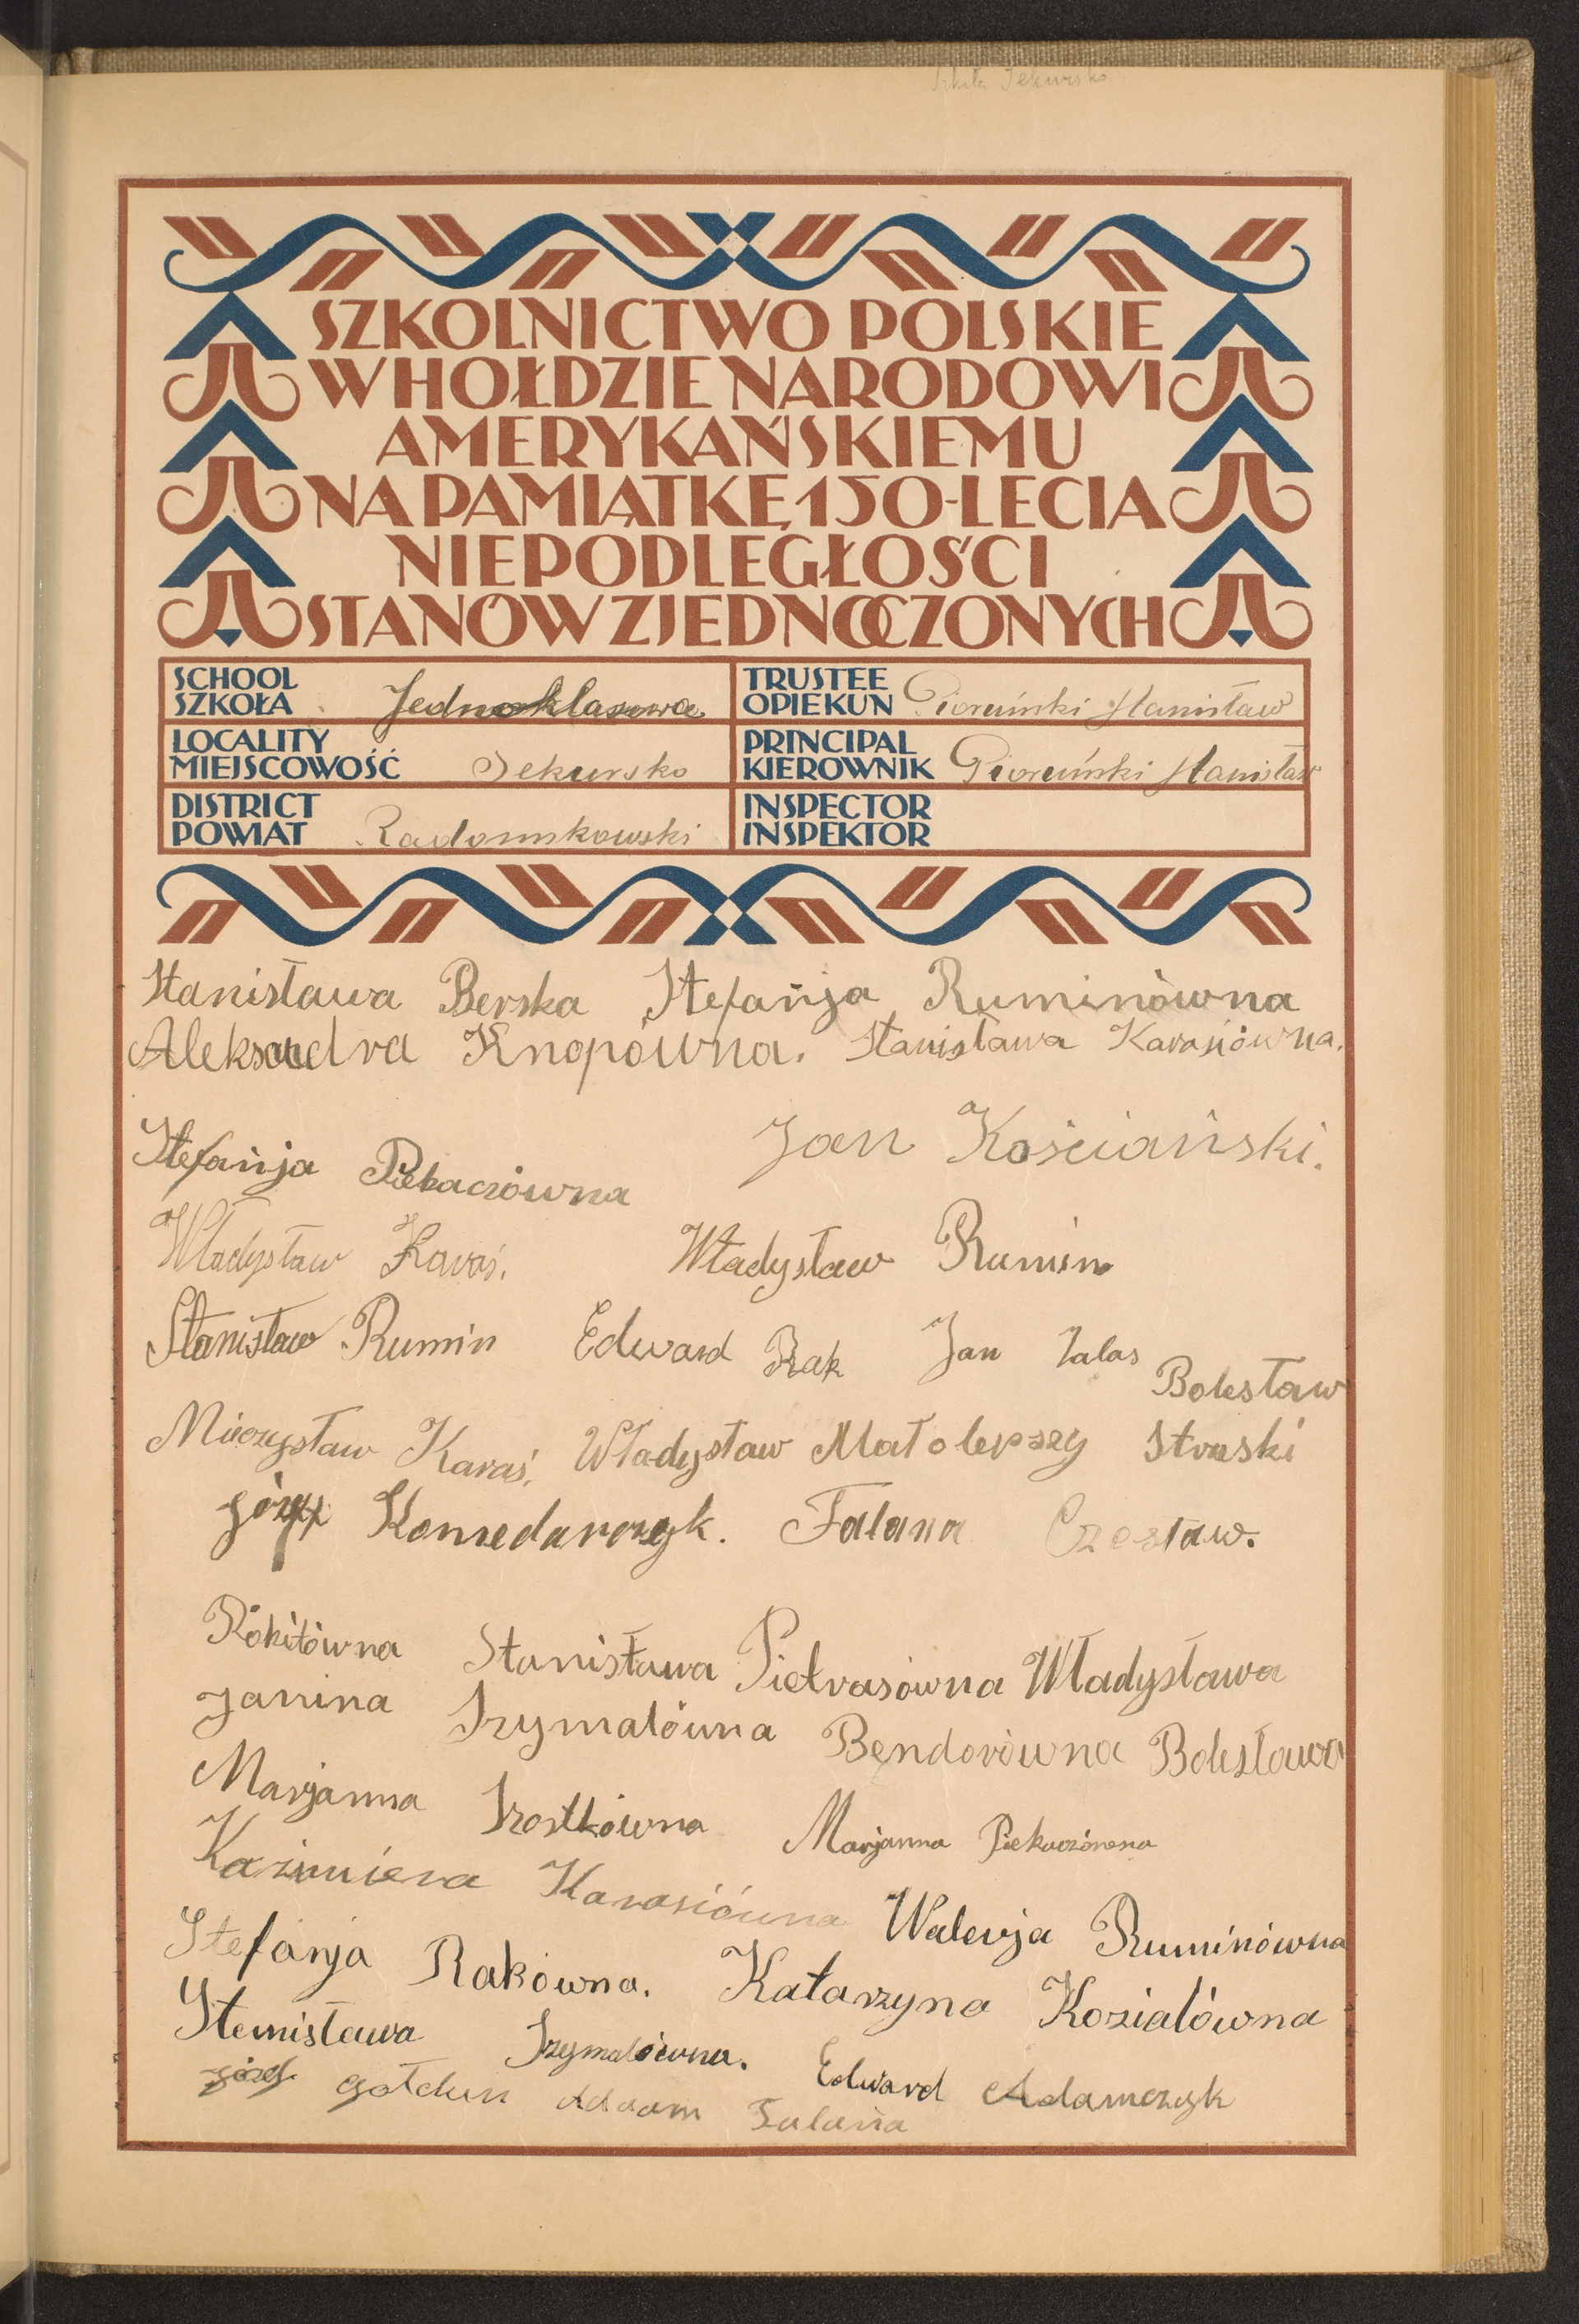 Szkoła Sekursko
SZKOLNICTWO POLSKIE
W HOŁDZIE NARODOWI
AMERYKAŃSKIEMU
NA PAMIĄTKĘ 150-LECIA
NIEPODLEGŁOŚCI
STANÓW ZJEDNOCZONYCH
SCHOOL
SZKOŁA Jednoklasowa
TRUSTEE
OPIEKUN Pioruński Stanisław
LOCALITY
MIEJSCOWOŚĆ Sekursko
PRINCIPAL
KIEROWNIK Pioruński Stanisław
DISTRICT
POWIAT Radomskowski
INSPECTOR
INSPEKTOR
Stanisława Berska Stefańja Ruminówna
Aleksandra Knopówna. Stanisława Karasiówna.
Stefańja Piekaczówna Jan Kościański.
Władysław Karaś. Władysław Rumin
Stanisław Rumin Edward Rak Jan Zalas Bolesław
Mieczysław Karaś. Władysław Małolepszy Struski
Józef Konsedarczyk. Falana Czesław.
Rokitówna Stanisława Pietrasówna Władysława
Janina Szymalówna Bendorówna Bolesława
Marjanna Szostkówna Marjanna Piekaczówna
Kazimiera Karasiówna Walerja Ruminówna
Stefanja Rakówna. Katarzyna Kozialówna
Stanisława Szymalówna. Edward Adamczyk
Józef Gołdun Adaam Falana